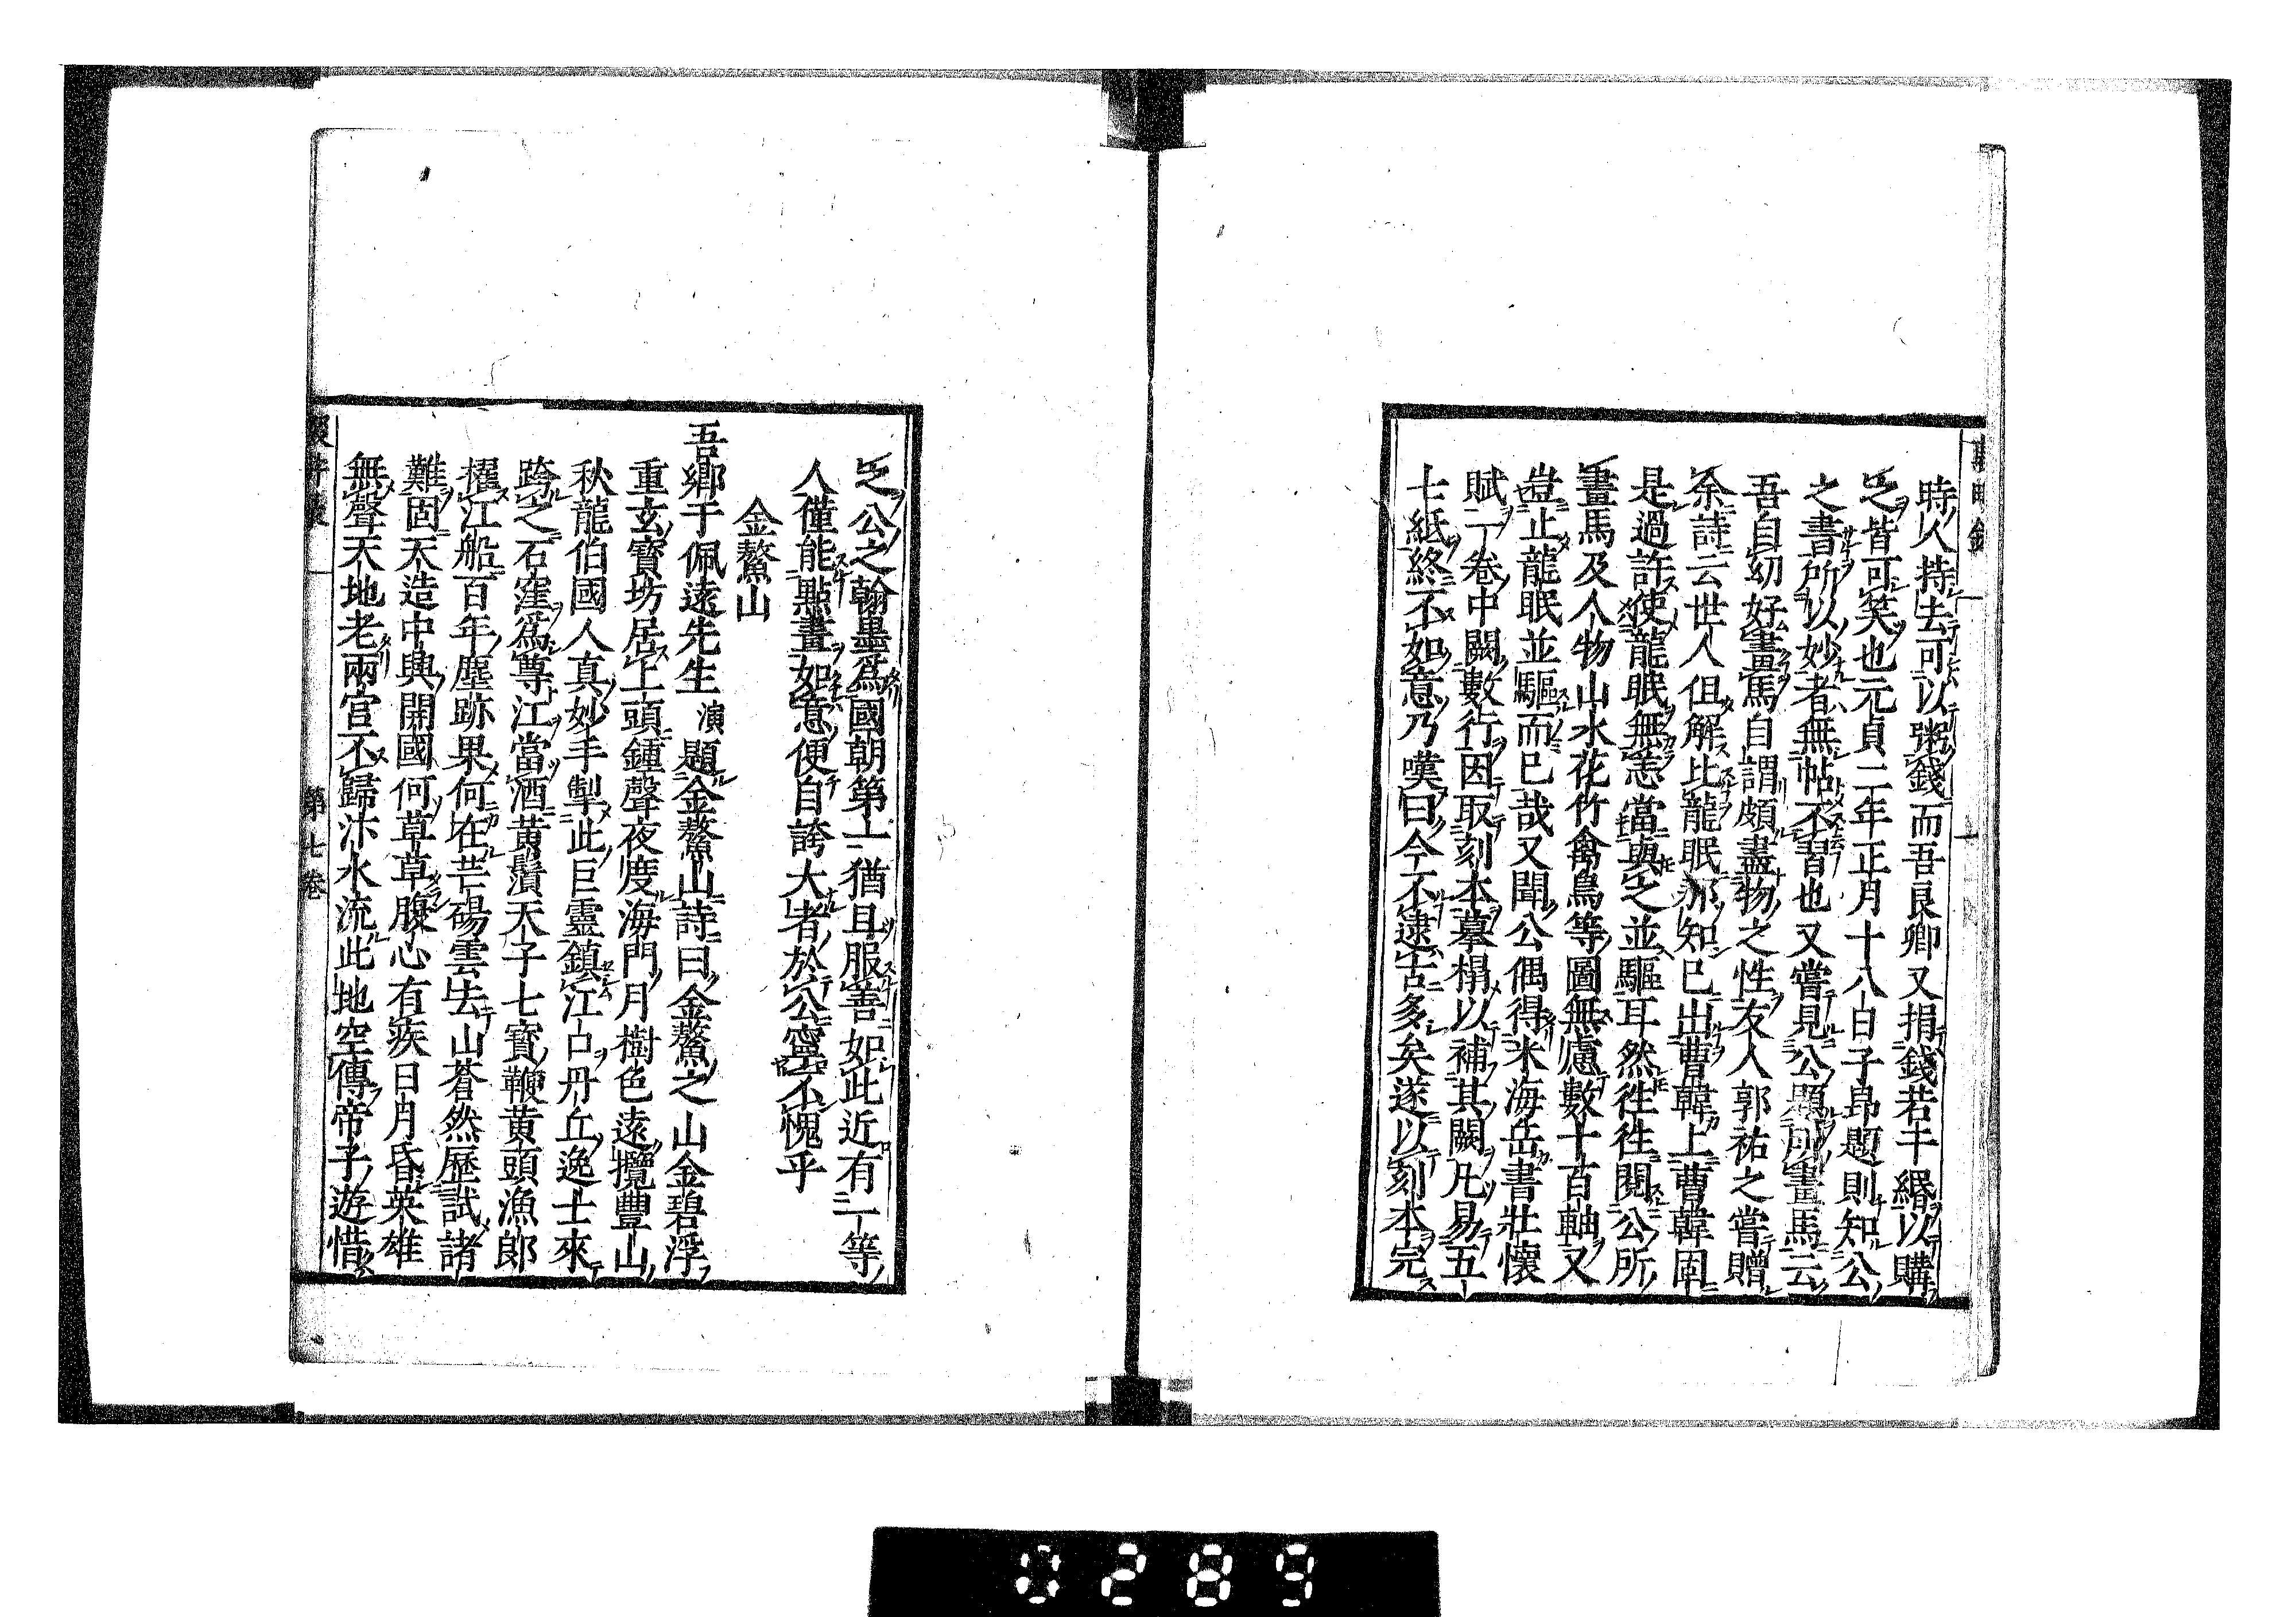 時人持去可以粥錢而吾良卿又捐錢若干緡以購
之皆可笑也元貞二年正月十八日子昻題則知公
之書所以妙者無帖不習也又嘗見公題所畫馬云
吾自幼好畫馬自謂頗盡物之性友人郭祐之嘗贈
余詩云世人但解比龍眠那知已出曹韓上曹韓固
是過許使龍眠無恙當與之並驅耳然徃徃閱公所
畫馬及人物山水花竹禽鳥等圖無慮數十百軸又
豈止龍眠並驅而已哉又聞公偶得米海岳書壯懷
賦一卷中闕數行因取刻本摹榻以補其闕凡易五
七紙終不如意乃嘆曰今不逮古多矣遂以刻本完
之公之翰墨爲國朝第一猶且服善如此近有一等
人僅能點畫如意便自誇大者於公寧不愧乎
金鰲山
吾鄉于佩遠先生演題金鰲山詩曰金鰲之山金碧浮
重玄寳坊居上頭鍾聲夜度海門月樹色遠攬豐山
秋龍伯國人真妙手掣此巨靈鎮江口丹丘逸士來
跨之石窪爲尊江當酒黃鬚天子七寳鞭黃頭漁郎
擢江船百年塵跡果何在芒碭雲去山蒼然歷試諸
難固天造中興開國何草草腹心有疾日月昏英雄
無聲天地老兩宫不歸汴水流此地空傳帝子遊惜
第七卷